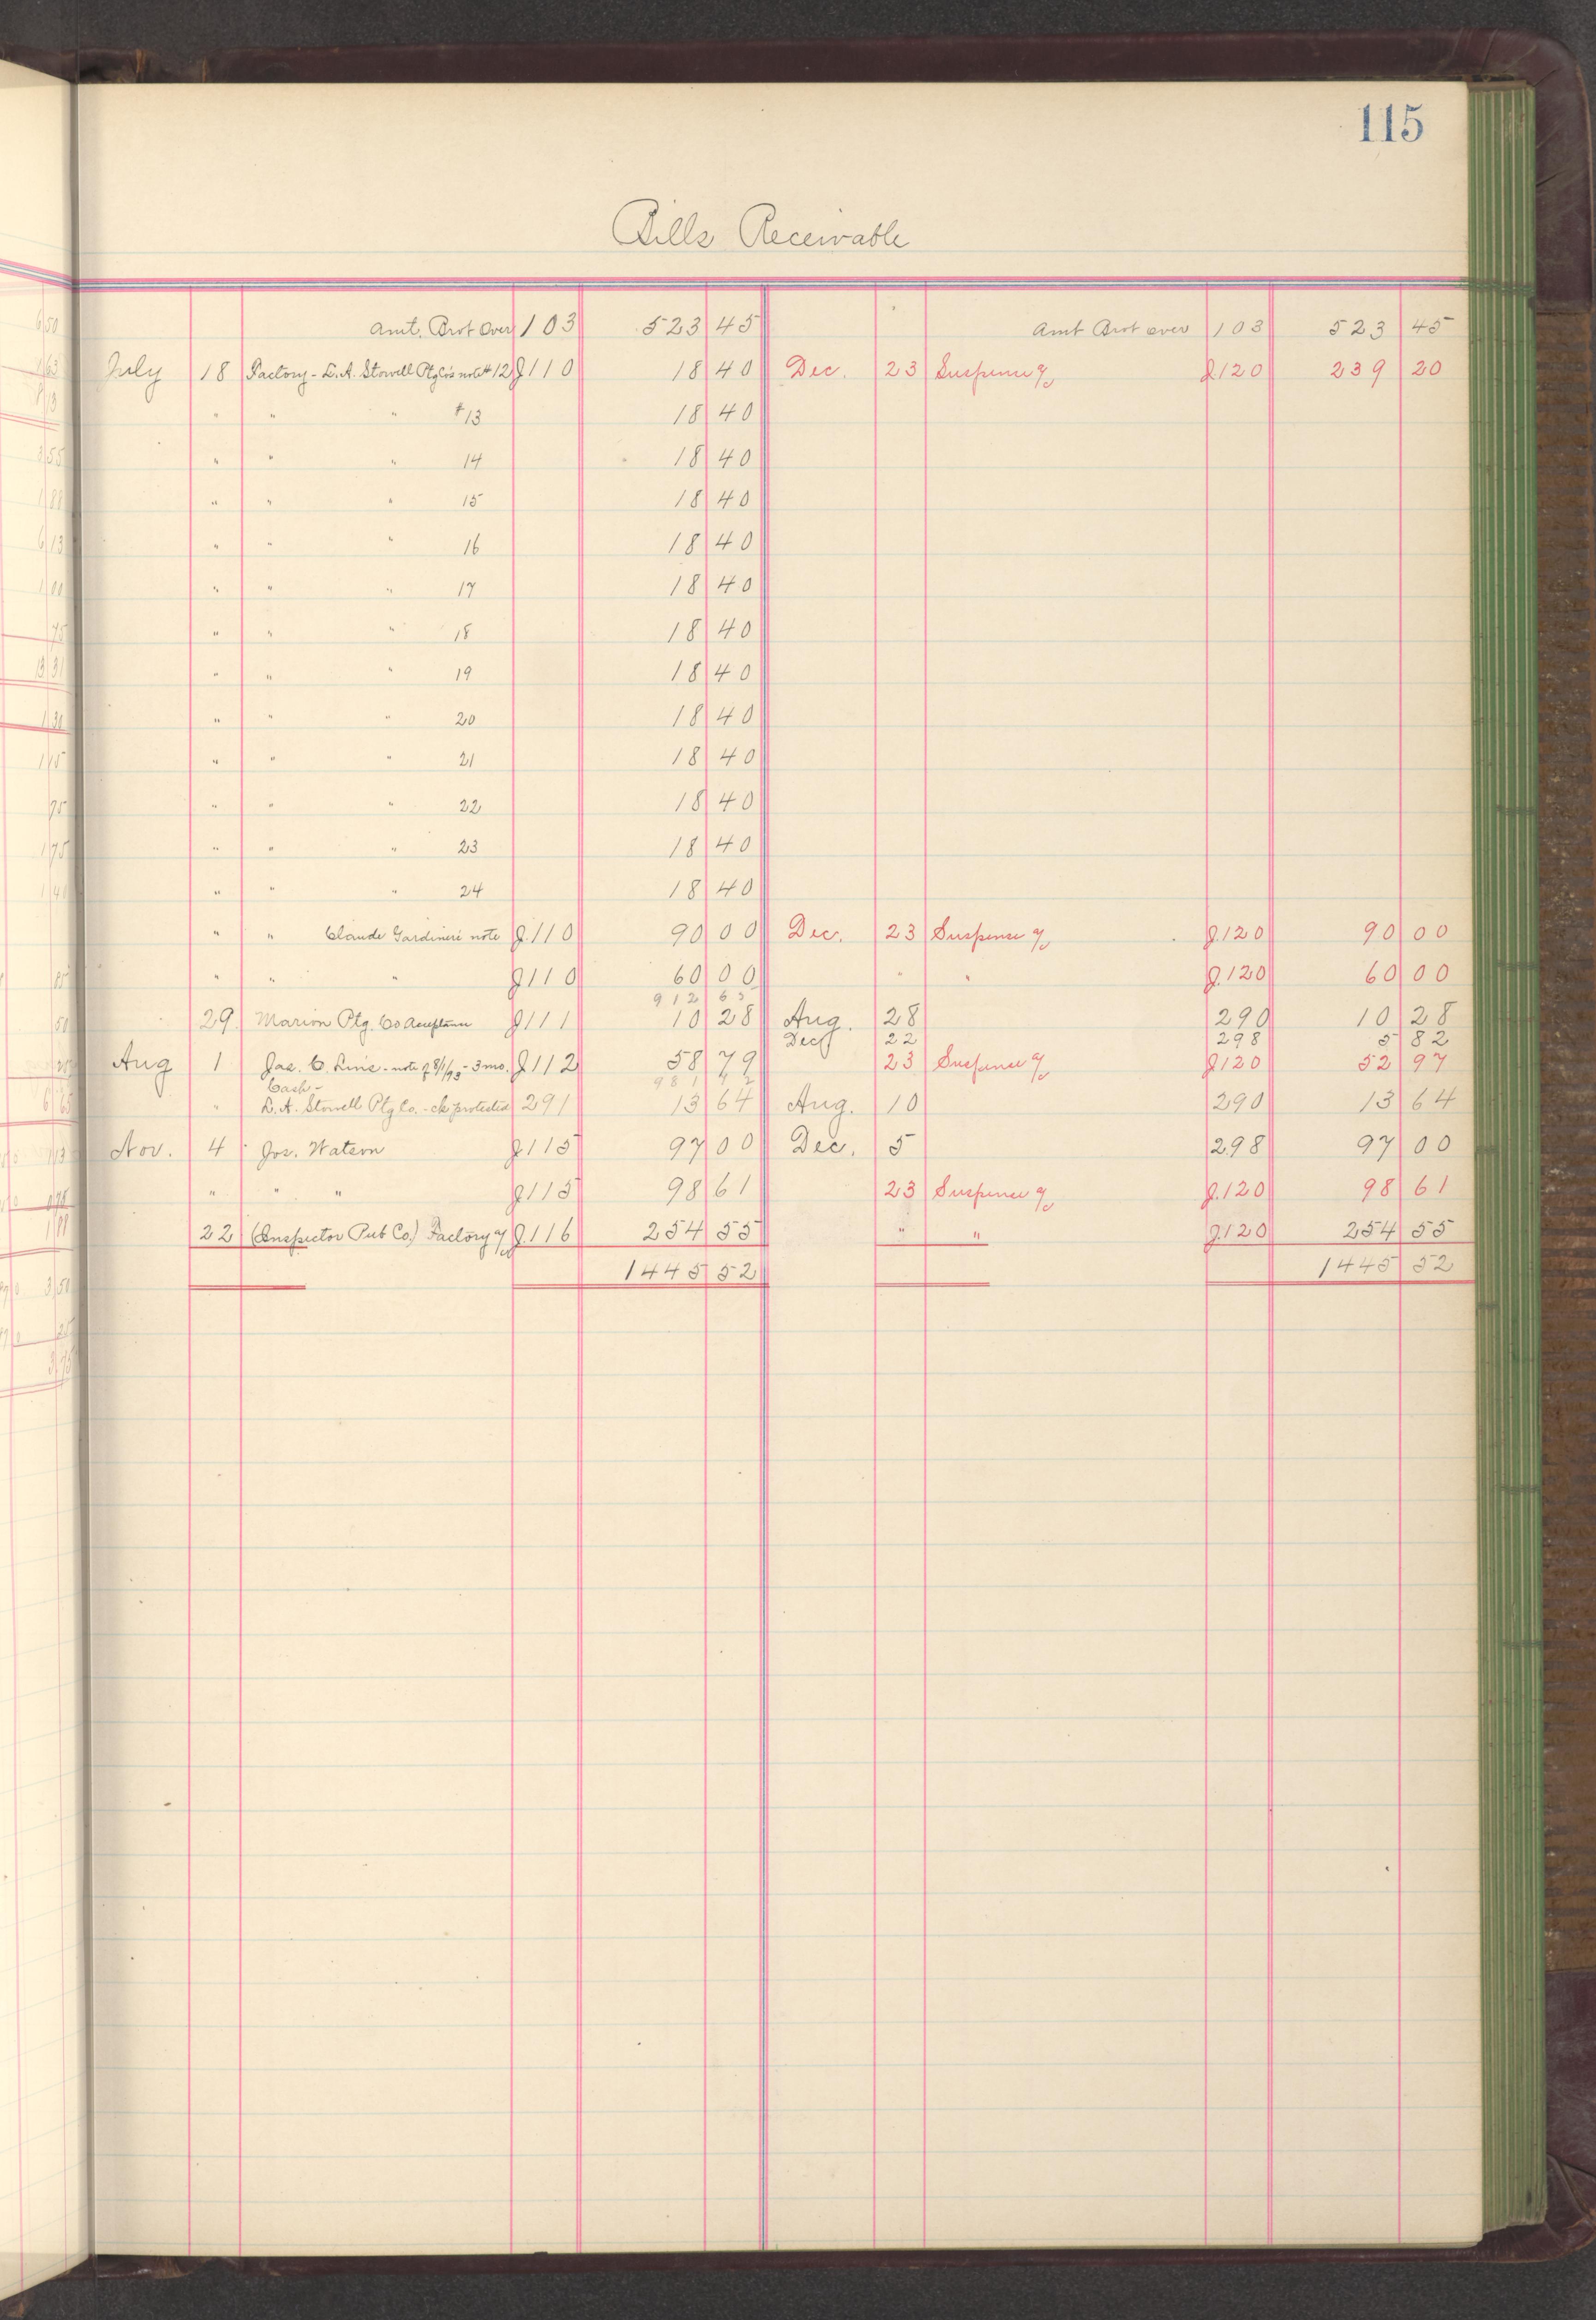 115
Bills Receivable
Amt. Brot Over 103 523 45 Amt Brot over 103 523 45
July 18 Factory - L.A. Stowell Ptg Co's note #12 J110 18 40 Dec. 23 Suspense a/c J120 239 20
" " " #13 18 40
" " " 14 18 40
" " " 15 18 40
" " " 16 18 40
" " " 17 18 40
" " " 18 18 40
" " " 19 18 40
" " " 20 18 40
" " " 21 18 40
" " " 22 18 40
" " " 23 18 40
" " " 24 18 40
" " Claude Gardiner's note J.110 90 00 Dec. 23 Suspense a/c J.120 90 00
" " " J110 60 00 " " J.120 60 00
912 65
29 Marion Ptg. Co Acceptance J111 10 28 Aug. 28 290 10 28
Dec 22 298 5 82
Aug 1 Jas. C. - note of 8/1/93 - 3 mo. J112 58 79 23 Suspense a/c J120 52 97
Cash - 981 42
" L.A. Stowell Ptg Co. - ck protested 291 13 64 Aug. 10 290 13 64
Nov. 4 Jos. Watson J115 97 00 Dec. 5 298 97 00
" " " J115 98 61 23 Suspense a/c J.120 98 61
22 (Inspector Pub Co.) Factory a/c J.116 254 55 " " J120 254 55
1445 52 1445 52